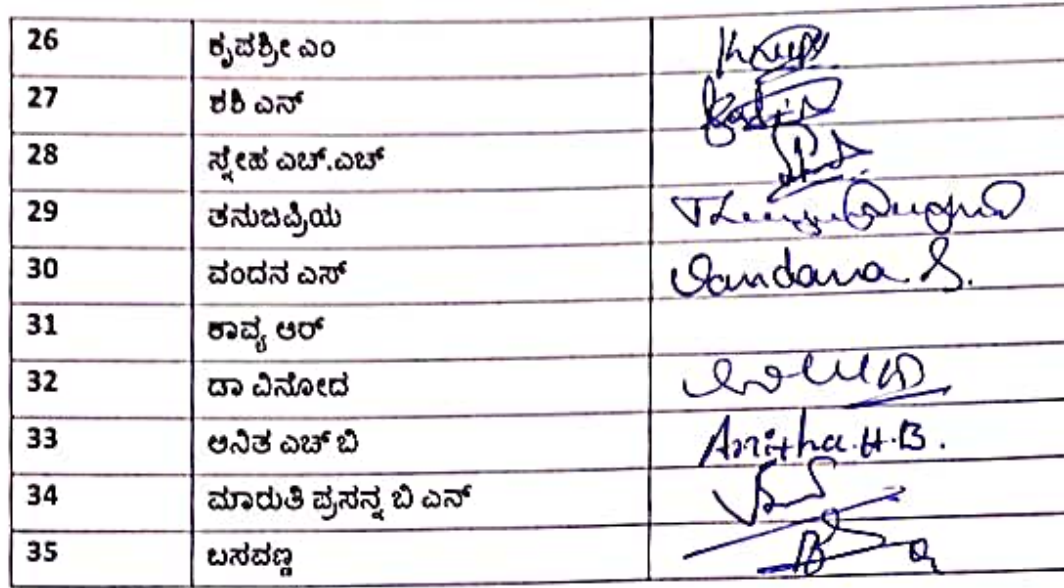 26 ಕೃಪಶ್ರೀ ಎಂ
27 ಶಶಿ ಎನ್
28 ಸ್ನೇಹ ಎಚ್.ಎಚ್
29 ತನುಜಪ್ರಿಯ
30 ವಂದನ ಎಸ್ Vandana S.
31 ಕಾವ್ಯ ಆರ್
32 ಡಾ ವಿನೋದ
33 ಅನಿತ ಎಚ್ ಬಿ Anitha.H.B.
34 ಮಾರುತಿ ಪ್ರಸನ್ನ ಬಿ ಎನ್
35 ಬಸವಣ್ಣ